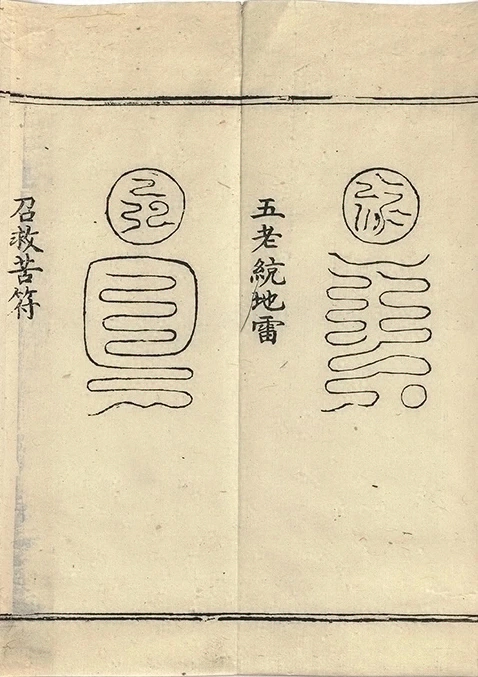 五老統地雷
召救苦符